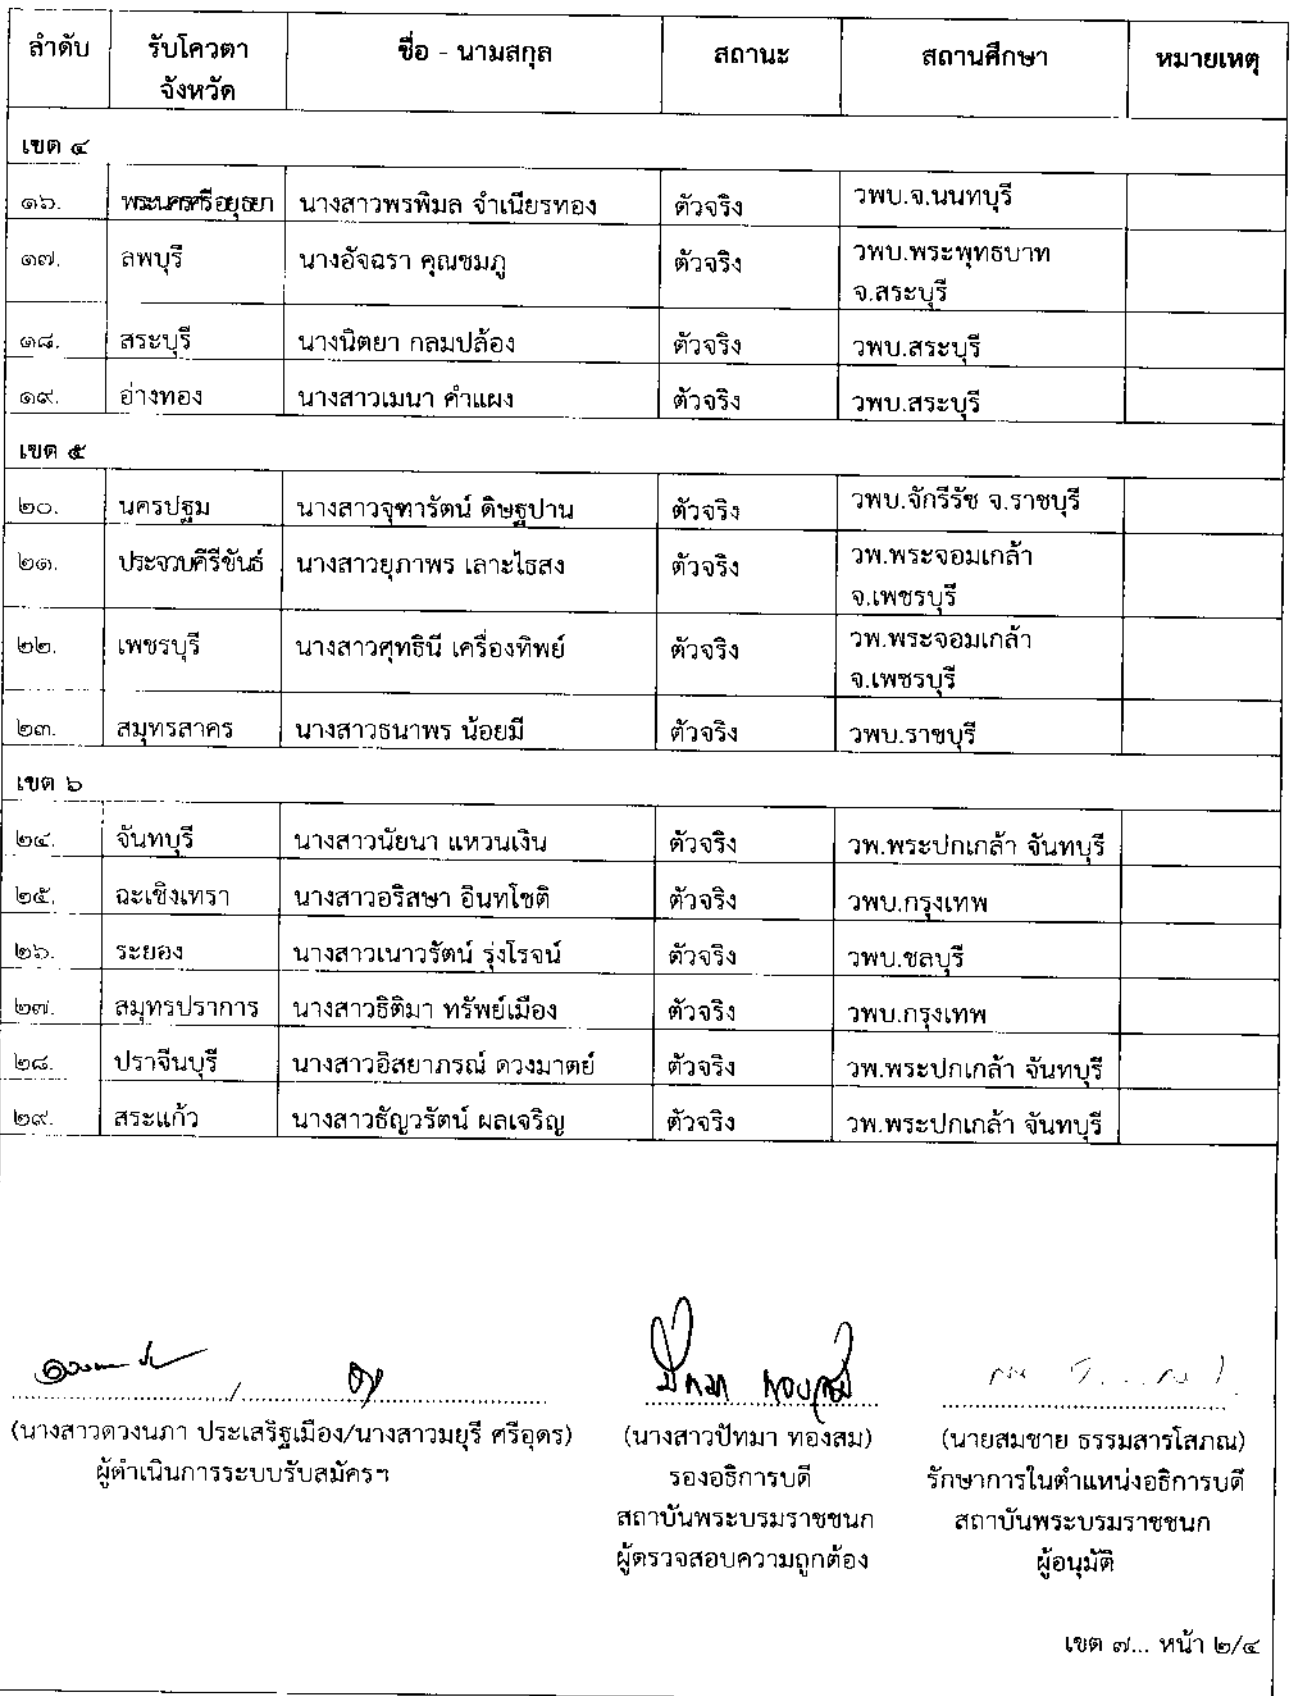 ลำดับ รับโควตา ชื่อ - นามสกุล สถานะ สถานศึกษา หมายเหตุ
จังหวัด
เขต ๔
๑๖. พระนครศรีอยุธยา นางสาวพรพิมล จำเนียรทอง ตัวจริง วพบ.จ.นนทบุรี
๑๗. ลพบุรี นางอัจฉรา คุณชมภู ตัวจริง วพบ.พระพุทธบาท
จ.สระบุรี
๑๘. สระบุรี นางนิตยา กลมปล้อง ตัวจริง วพบ.สระบุรี
๑๙. อ่างทอง นางสาวเมนา คำแผง ตัวจริง วพบ.สระบุรี
เขต ๕
๒๐. นครปฐม นางสาวจุฑารัตน์ ดิษฐปาน ตัวจริง วพบ.จักรีรัช จ.ราชบุรี
๒๑. ประจวบคีรีขันธ์ นางสาวยุภาพร เลาะไธสง ตัวจริง วพ.พระจอมเกล้า
จ.เพชรบุรี
๒๒. เพชรบุรี นางสาวศุทธินี เครื่องทิพย์ ตัวจริง วพ.พระจอมเกล้า
จ.เพชรบุรี
๒๓. สมุทรสาคร นางสาวธนาพร น้อยมี ตัวจริง วพบ.ราชบุรี
เขต ๖
๒๔. จันทบุรี นางสาวนัยนา แหวนเงิน ตัวจริง วพ.พระปกเกล้า จันทบุรี
๒๕. ฉะเชิงเทรา นางสาวอริสษา อินทโชติ ตัวจริง วพบ.กรุงเทพ
๒๖. ระยอง นางสาวเนาวรัตน์ รุ่งโรจน์ ตัวจริง วพบ.ชลบุรี
๒๗. สมุทรปราการ นางสาวธิติมา ทรัพย์เมือง ตัวจริง วพบ.กรุงเทพ
๒๘. ปราจีนบุรี นางสาวอิสยาภรณ์ ดวงมาตย์ ตัวจริง วพ.พระปกเกล้า จันทบุรี
๒๙. สระแก้ว นางสาวธัญวรัตน์ ผลเจริญ ตัวจริง วพ.พระปกเกล้า จันทบุรี
ปัทมา ทองสม
(นางสาวดวงนภา ประเสริฐเมือง/นางสาวมยุรี ศรีอุดร) (นางสาวปัทมา ทองสม) (นายสมชาย ธรรมสารโสภณ)
ผู้ดำเนินการระบบรับสมัครฯ รองอธิการบดี รักษาการในตำแหน่งอธิการบดี
สถาบันพระบรมราชชนก สถาบันพระบรมราชชนก
ผู้ตรวจสอบความถูกต้อง ผู้อนุมัติ
เขต ๗... หน้า ๒/๔